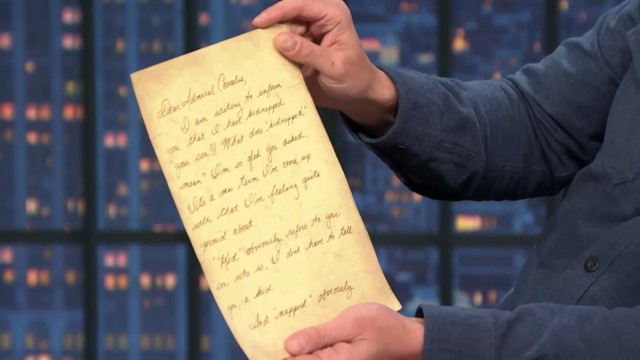 Dear Admiral Cornelius,
I am writing to inform
you that I have kidnapped
your son!!! What does "kidnapped"
mean? I'm so glad you asked.
It's a new term I've come up
with that I'm feeling quite
proud about.
"Kid" obviously refers to your
son who is, I don't have to tell
you, a kid.
And "napped" obviously